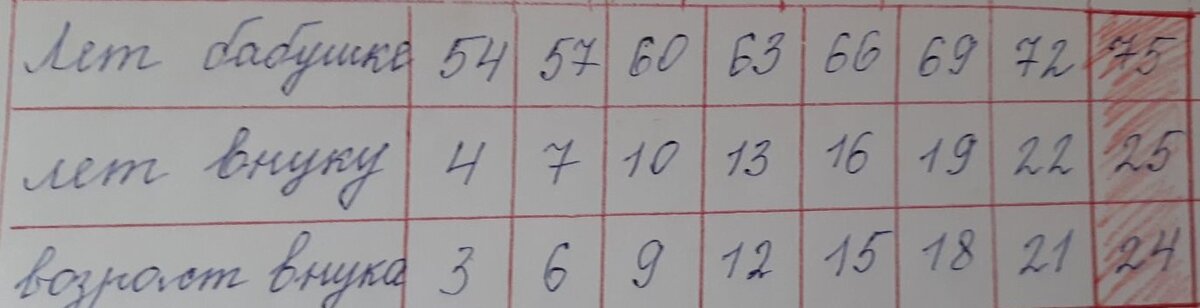 Лет бабушке 54 57 60 63 66 69 72 75
лет внуку 4 7 10 13 16 19 22 25
возраст внука 3 6 9 12 15 18 21 24